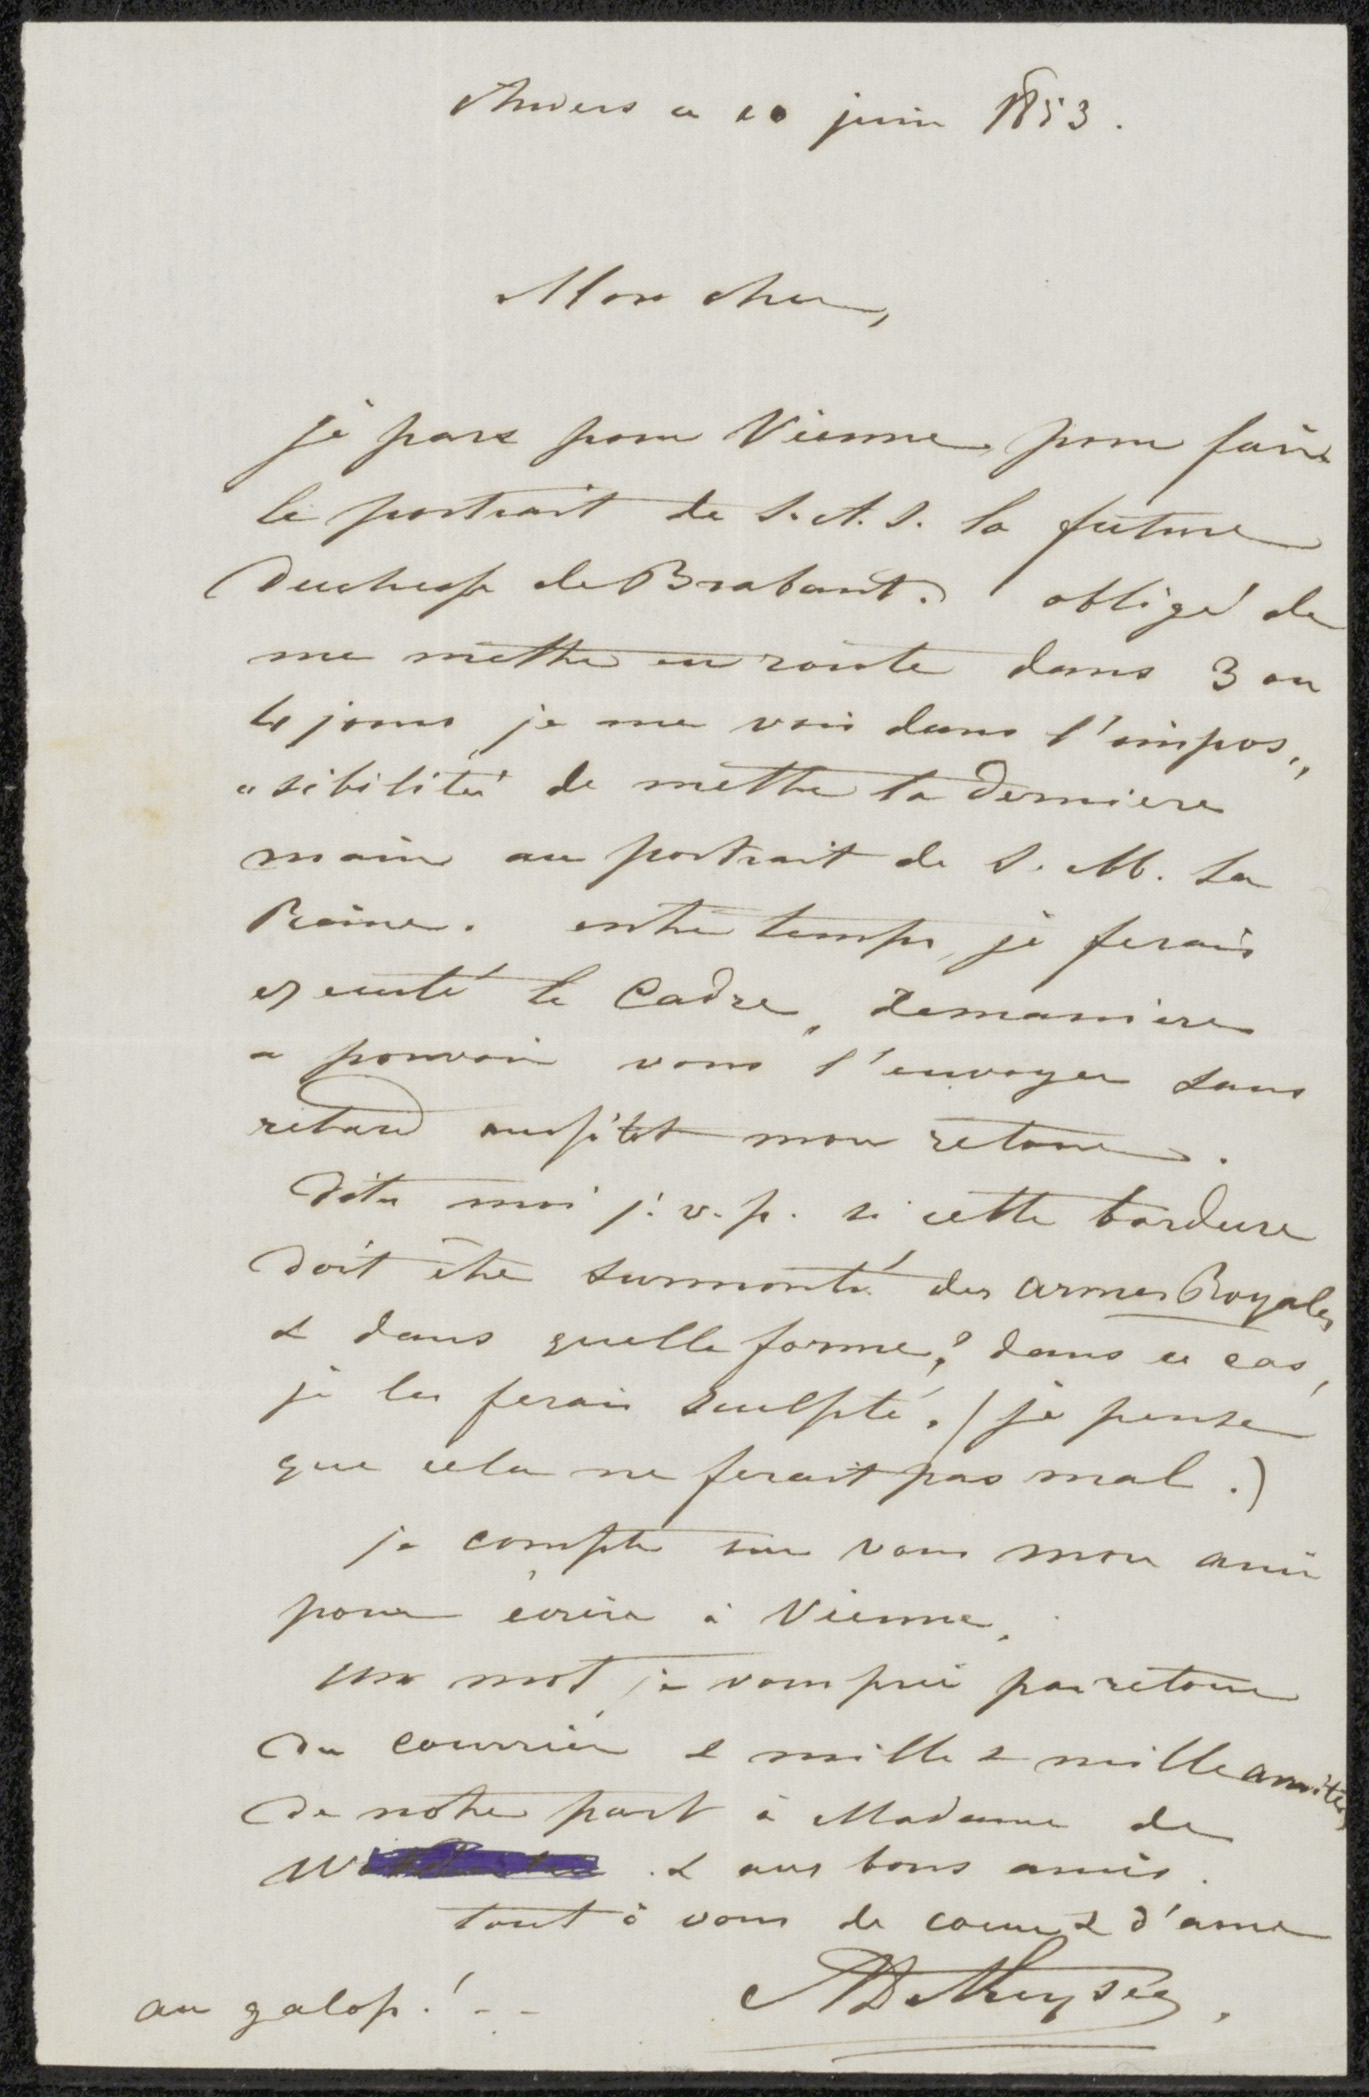 Anvers ce 10 juin 1853.
Mon cher,
je pars pour Vienne, pour faire
le portrait de S. A. S. la future
Duchesse de Brabant. obligé de
me mettre en route dans 3 ou
4 jours, je me vois dans l'impos„
„sibilité de mettre la derniere
main au portrait de S. M. la
Reine. entre temps, je ferais
executé le Cadre, de maniere
a pouvoir vous l'envoyer sans
retard aussitôt mon retour.
Dites moi s. v. p. si cette bordure
doit être surmonté des armes Royales
& dans quelle forme? dans ce cas,
je les ferai sculpté. (je pense
que cela ne ferait pas mal.)
je compte sur vous mon ami
pour écrire à Vienne.
un mot je vous prie par retour
du courrier & mille & mille amitiés
de notre part à Madame de
& aux bons amis.
tout à vous de coeur & d'ame
au galop! - -